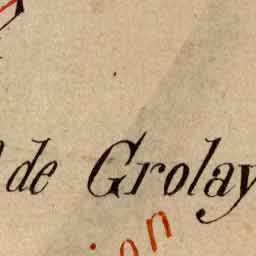 de Grolay
ion